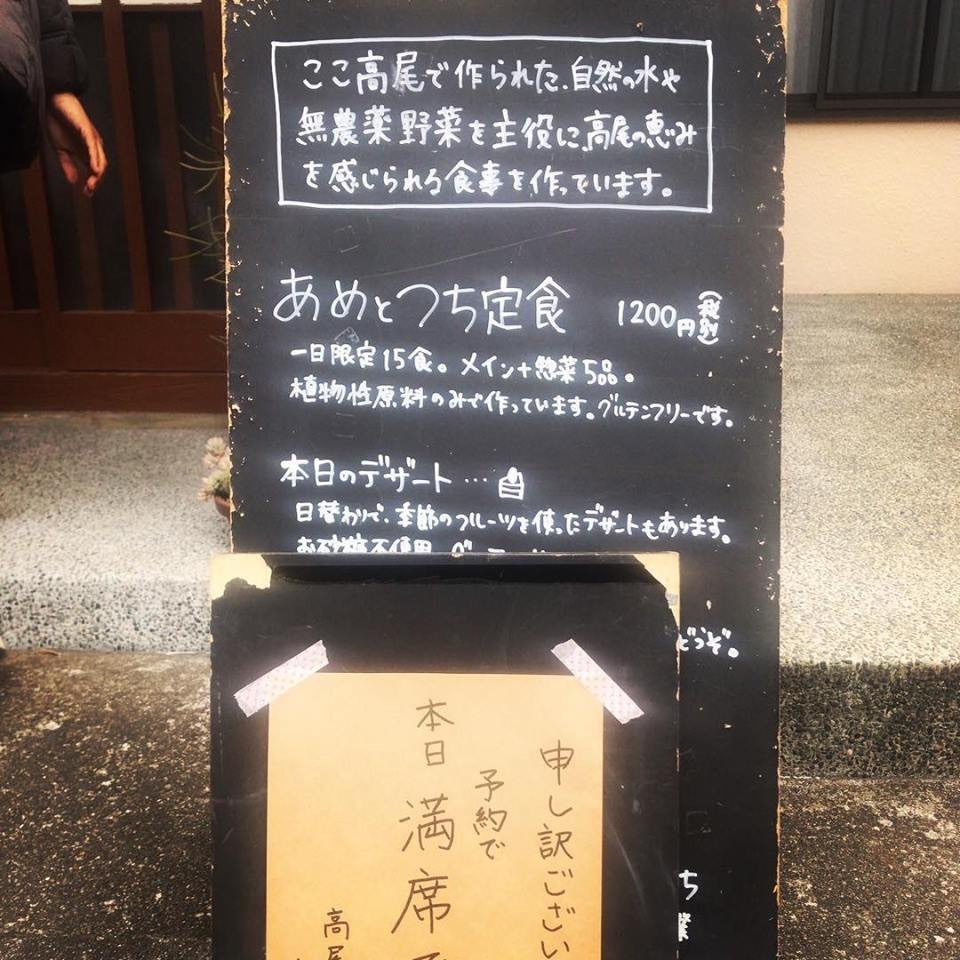 ここ高尾で作られた、自然の水や
無農薬野菜を主役に、高尾の恵み
を感じられる食事を作っています。
あめとつち定食 1200円(税別)
一日限定15食。メイン+惣菜5品。
植物性原料のみで作っています。グルテンフリーです。
本日のデザート…
日替わりで、季節のフルーツを使ったデザートもあります。
お砂糖不使用
どうぞ。
ち
業
申し訳ござい
予約で
本日満席
高尾